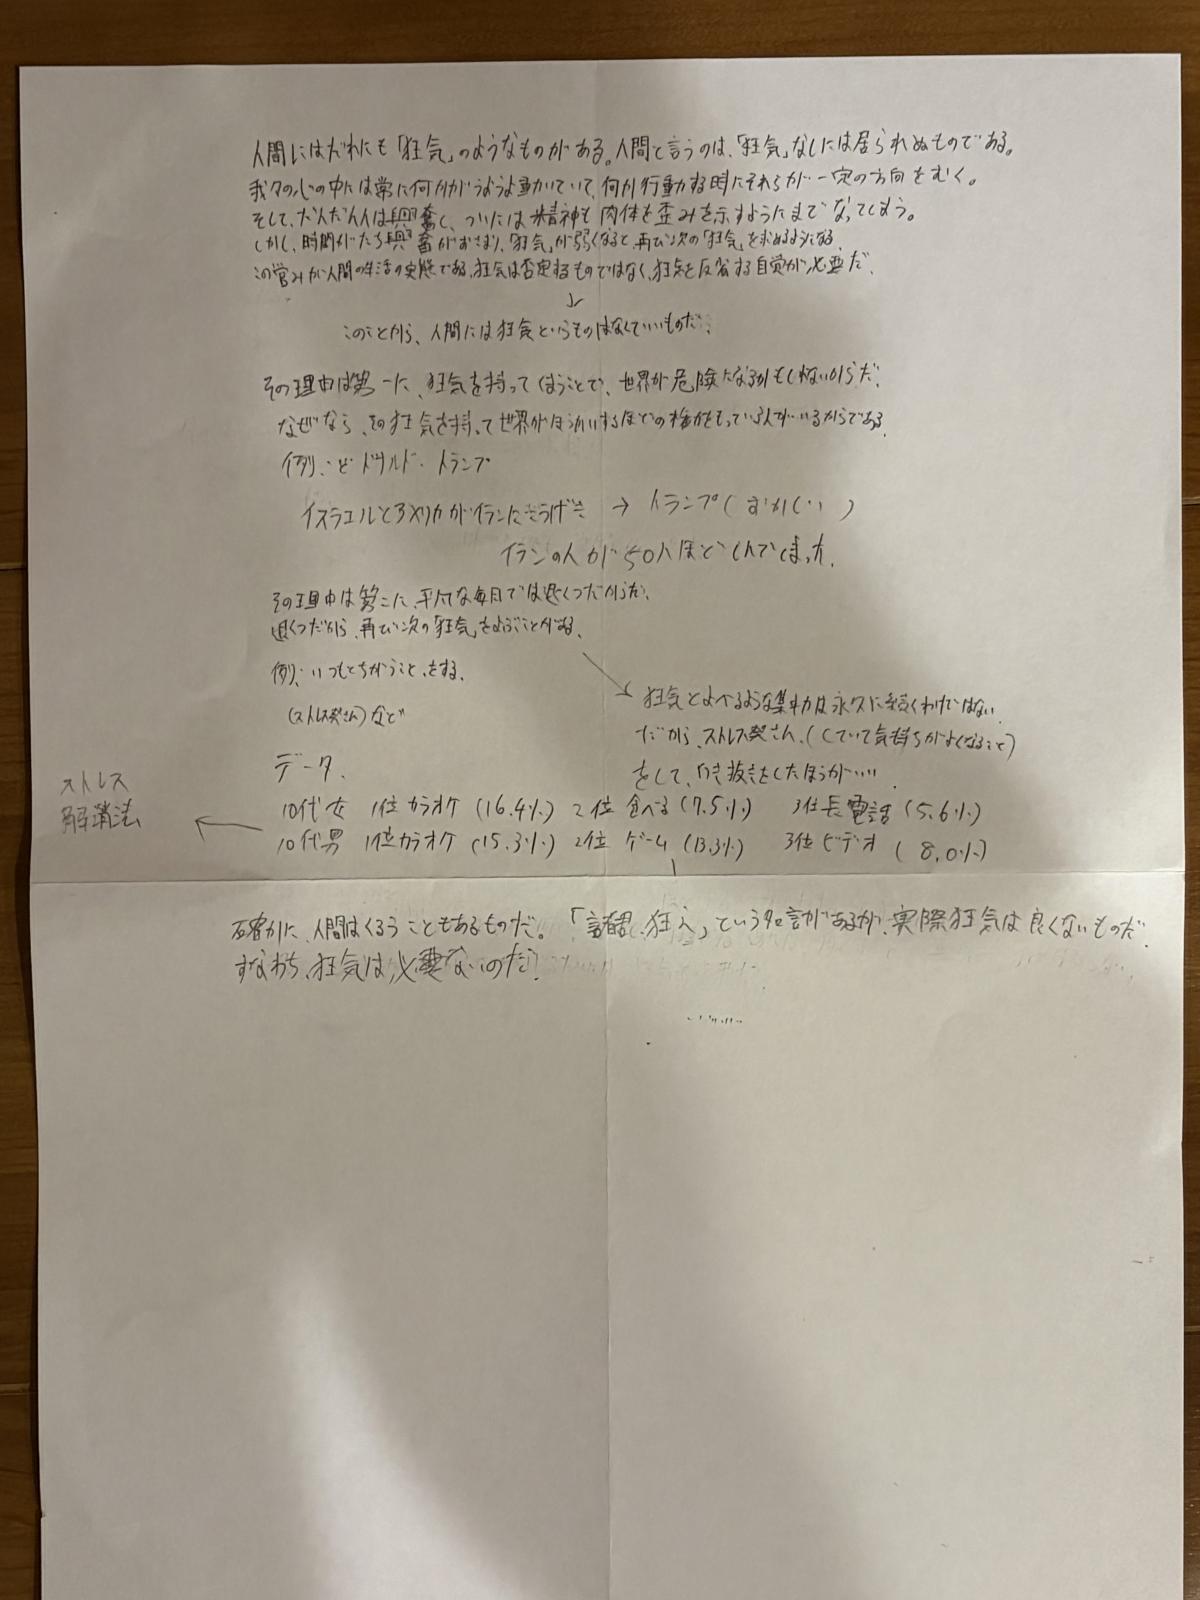 人間にはだれにも「狂気」のようなものがある。人間と言うのは、「狂気」なしには居られぬものである。
我々の心の中には常に何かがうようよ動いていて、何か行動する時にそれらが一定の方向をむく。
そして、だんだん人は興奮し、ついには精神も肉体を歪みを示すようにまでなってしまう。
しかし、時間がたち興奮がおさまり、「狂気」が弱くなると、再び次の「狂気」を求めるようになる。
この営みが人間の生活の実態である。狂気は否定するものではなく、狂気を反省する自覚が必要だ。
↓
このことから、人間には狂気というものはなくていいものだ。
その理由は第一に、狂気を持ってしまうことで、世界が危険になるかもしれないからだ。
なぜなら、その狂気を持って世界がほうかいするほどの権力をもっている人がいるからである。
例、ドナルド・トランプ
イスラエルとアメリカがイランにこうげき → トランプ(おかしい)
イランの人が50人ほどしんでしまった。
その理由は第二に、平凡な毎日では退くつだからだ。
退くつだから、再び次の「狂気」をよぶことがある。
例、いつもとちがうことをする。
(ストレス発さん)など
狂気とよべるような集中力は永久に続くわけではない
だから、ストレス発さん、(していて気持ちがよくなること)
をして、息抜きをしたほうがいい。
データ、
ストレス
解消法
10代女 1位カラオケ (16.4%) 2位 食べる (7.5%) 3位長電話 (5.6%)
10代男 1位カラオケ (15.3%) 2位 ゲーム (13.3%) 3位ビデオ (8.0%)
確かに、人間はくるうこともあるものだ。「諸君、狂え」という名言があるが、実際狂気は良くないものだ。
すなわち、狂気は必要ないのだ!